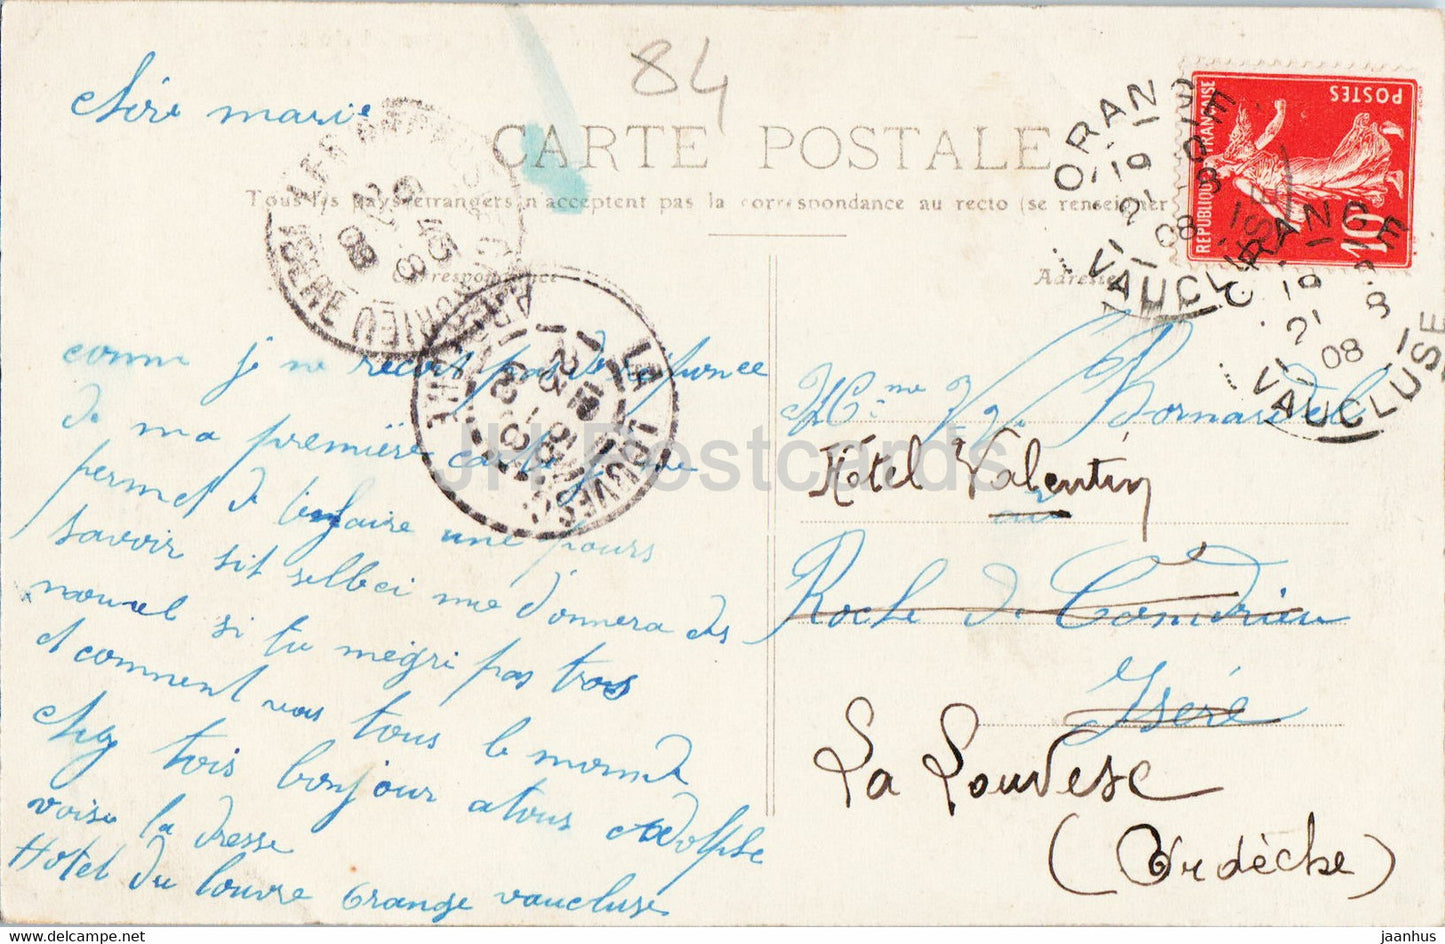 84
chère marie
CARTE POSTALE
Tous les pays étrangers n'acceptent pas la correspondance au recto (se renseigner
Correspondance
Adresse
POSTES
REPUBLIQUE FRANÇAISE
10c
ORANGE
19
21
8
08
VAUCLUSE
ORANGE
19
21
8
08
VAUCLUSE
ISERE
LA LOUVESC
ARDECHE
comme je ne reçois pas de reponce
de ma première carte je me
permet de t'enfaire une pours
savoir sit selbei me donnera des
nouvel si tu megri pas tros
et comment vas tous le monde
chez tois bonjour atous Adolphe
voisi la dresse
Hotel du louvre Orange vaucluse
Mme Vve Bornardel
Hôtel Valentin
Roche de Condrieu
Isère
La Louvesc
(Ardèche)
JH Postcards
jaanhus.com